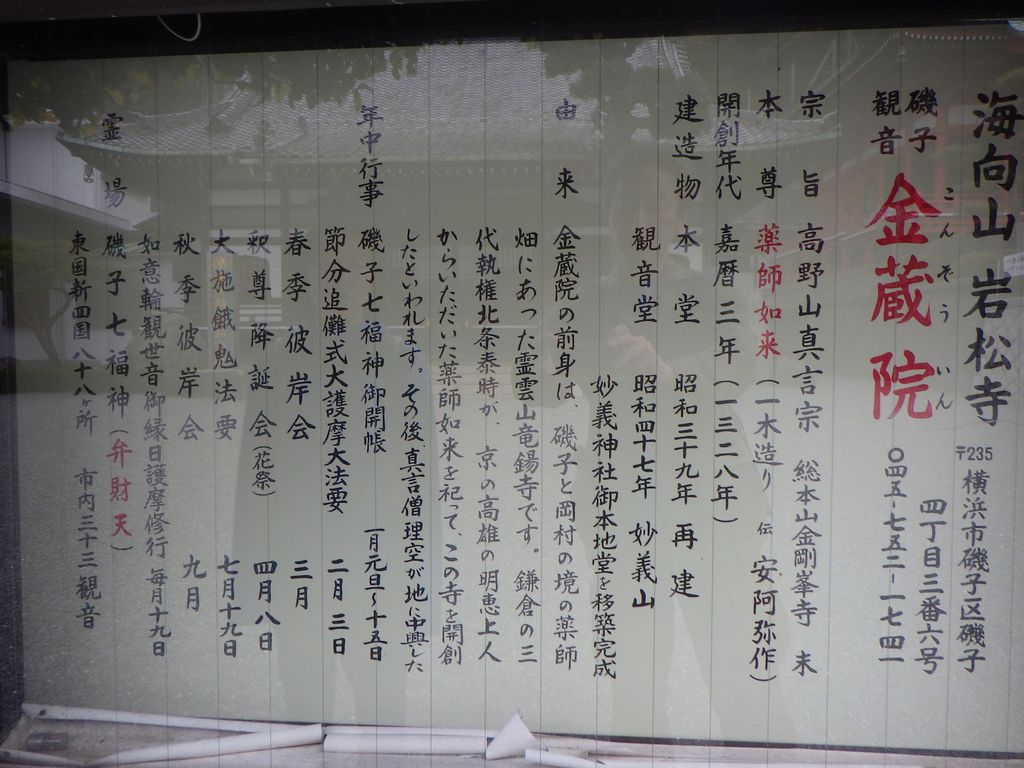 海向山 岩松寺
〒235 横浜市磯子区磯子
四丁目三番六号
磯子
観音
金蔵院
こんぞういん
〇四五-七五二-一七四一
宗旨 高野山真言宗 総本山金剛峯寺 末
本尊 薬師如来(一木造り 伝 安阿弥作)
開創年代 嘉暦三年(一三二八年)
建造物 本堂 昭和三十九年 再建
観音堂 昭和四十七年 妙義山
妙義神社御本地堂を移築完成
由来 金蔵院の前身は、磯子と岡村の境の薬師
畑にあった霊雲山竜鍚寺です。鎌倉の三
代執権北条泰時が、京の高雄の明恵上人
からいただいた薬師如来を祀って、この寺を開創
したといわれます。その後、真言僧理空が地に中興した
年中行事 磯子七福神御開帳 一月元旦~十五日
節分追儺式大護摩大法要 二月三日
春季彼岸会 三月
釈尊降誕会(花祭) 四月八日
大施餓鬼法要 七月十九日
秋季彼岸会 九月
如意輪観世音御縁日護摩修行 毎月十九日
霊場 磯子七福神(弁財天)
東国新四国八十八ヶ所 市内三十三観音